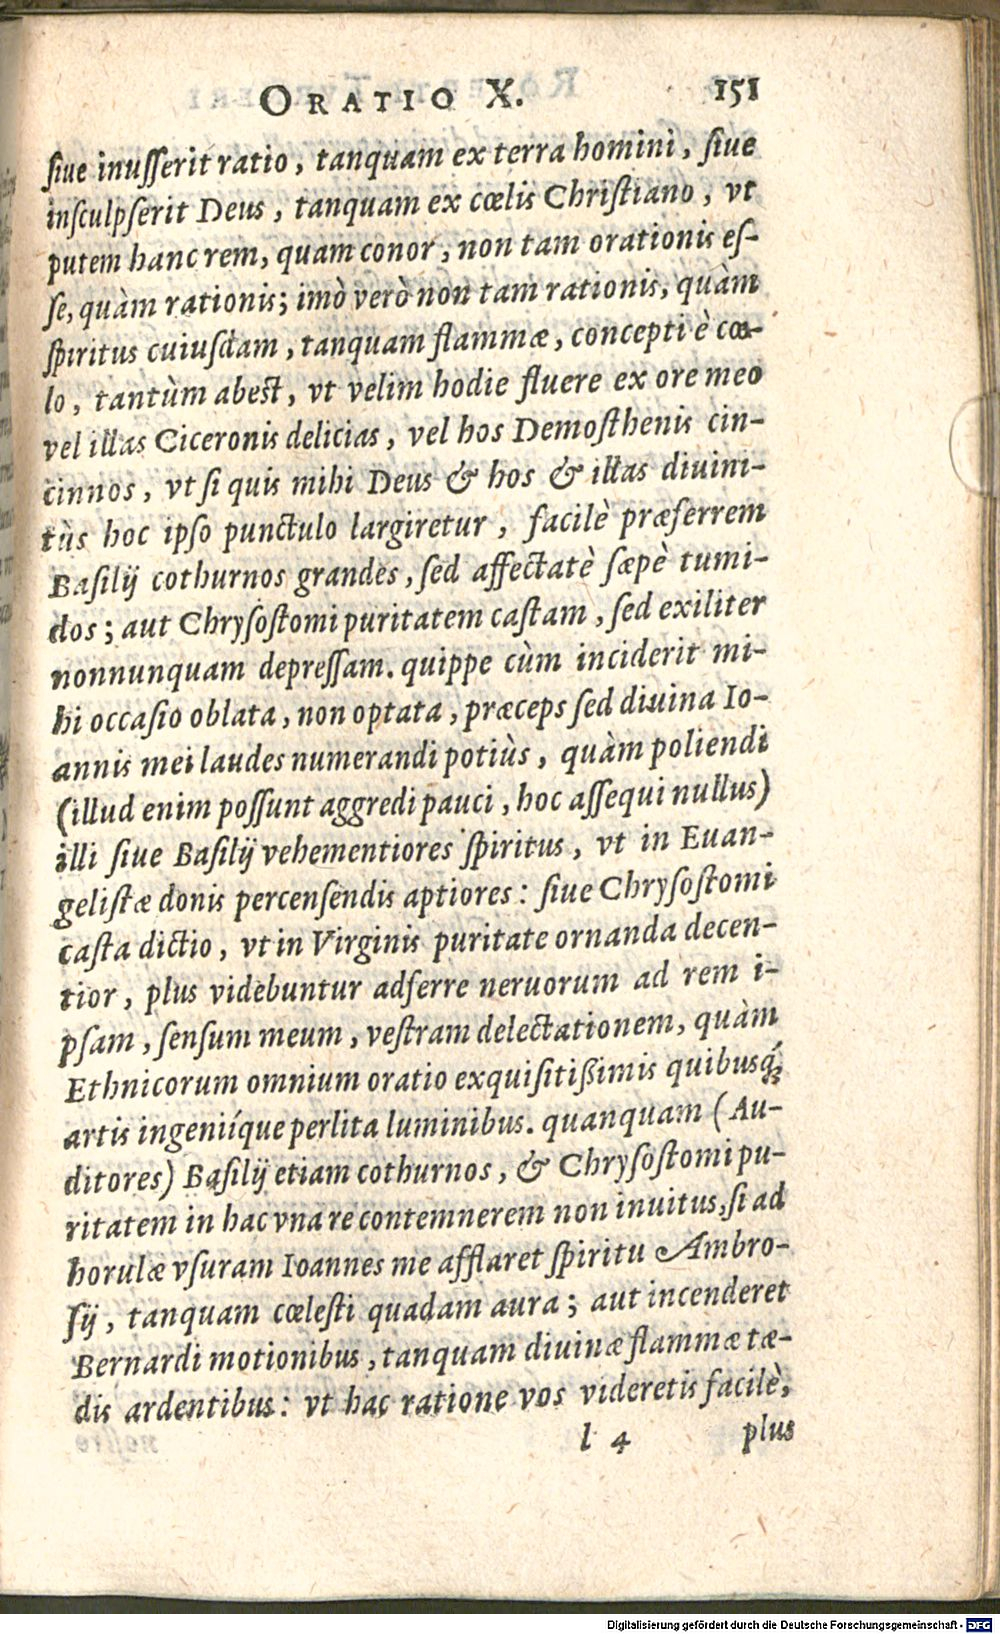 ORATIO X. 151
siue inusserit ratio, tanquam ex terra homini, siue
insculpserit Deus, tanquam ex cœlis Christiano, vt
putem hanc rem, quam conor, non tam orationis es-
se, quàm rationis; imò verò non tam rationis, quàm
spiritus cuiusdam, tanquam flammæ, concepti è cœ-
lo, tantùm abest, vt velim hodie fluere ex ore meo
vel illas Ciceronis delicias, vel hos Demosthenis cin-
cinnos, vt si quis mihi Deus & hos & illas diuini-
tùs hoc ipso punctulo largiretur, facilè præferrem
Basilij cothurnos grandes, sed affectatè sæpè tumi-
dos; aut Chrysostomi puritatem castam, sed exiliter
nonnunquam depressam. quippe cùm inciderit mi-
hi occasio oblata, non optata, præceps sed diuina Io-
annis mei laudes numerandi potiùs, quàm poliendi
(illud enim possunt aggredi pauci, hoc assequi nullus)
illi siue Basilij vehementiores spiritus, vt in Euan-
gelistæ donis percensendis aptiores: siue Chrysostomi
casta dictio, vt in Virginis puritate ornanda decen-
tior, plus videbuntur adferre neruorum ad rem i-
psam, sensum meum, vestram delectationem, quàm
Ethnicorum omnium oratio exquisitißimis quibusq́;
artis ingenií­que perlita luminibus. quanquam (Au-
ditores) Basilij etiam cothurnos, & Chrysostomi pu-
ritatem in hac vna re contemnerem non inuitus, si ad
horulæ vsuram Ioannes me afflaret spiritu Ambro-
sij, tanquam cœlesti quadam aura; aut incenderet
Bernardi motionibus, tanquam diuinæ flammæ tæ-
dis ardentibus: vt hac ratione vos videretis facilè,
l 4 plus
Digitalisierung gefördert durch die Deutsche Forschungsgemeinschaft - DFG